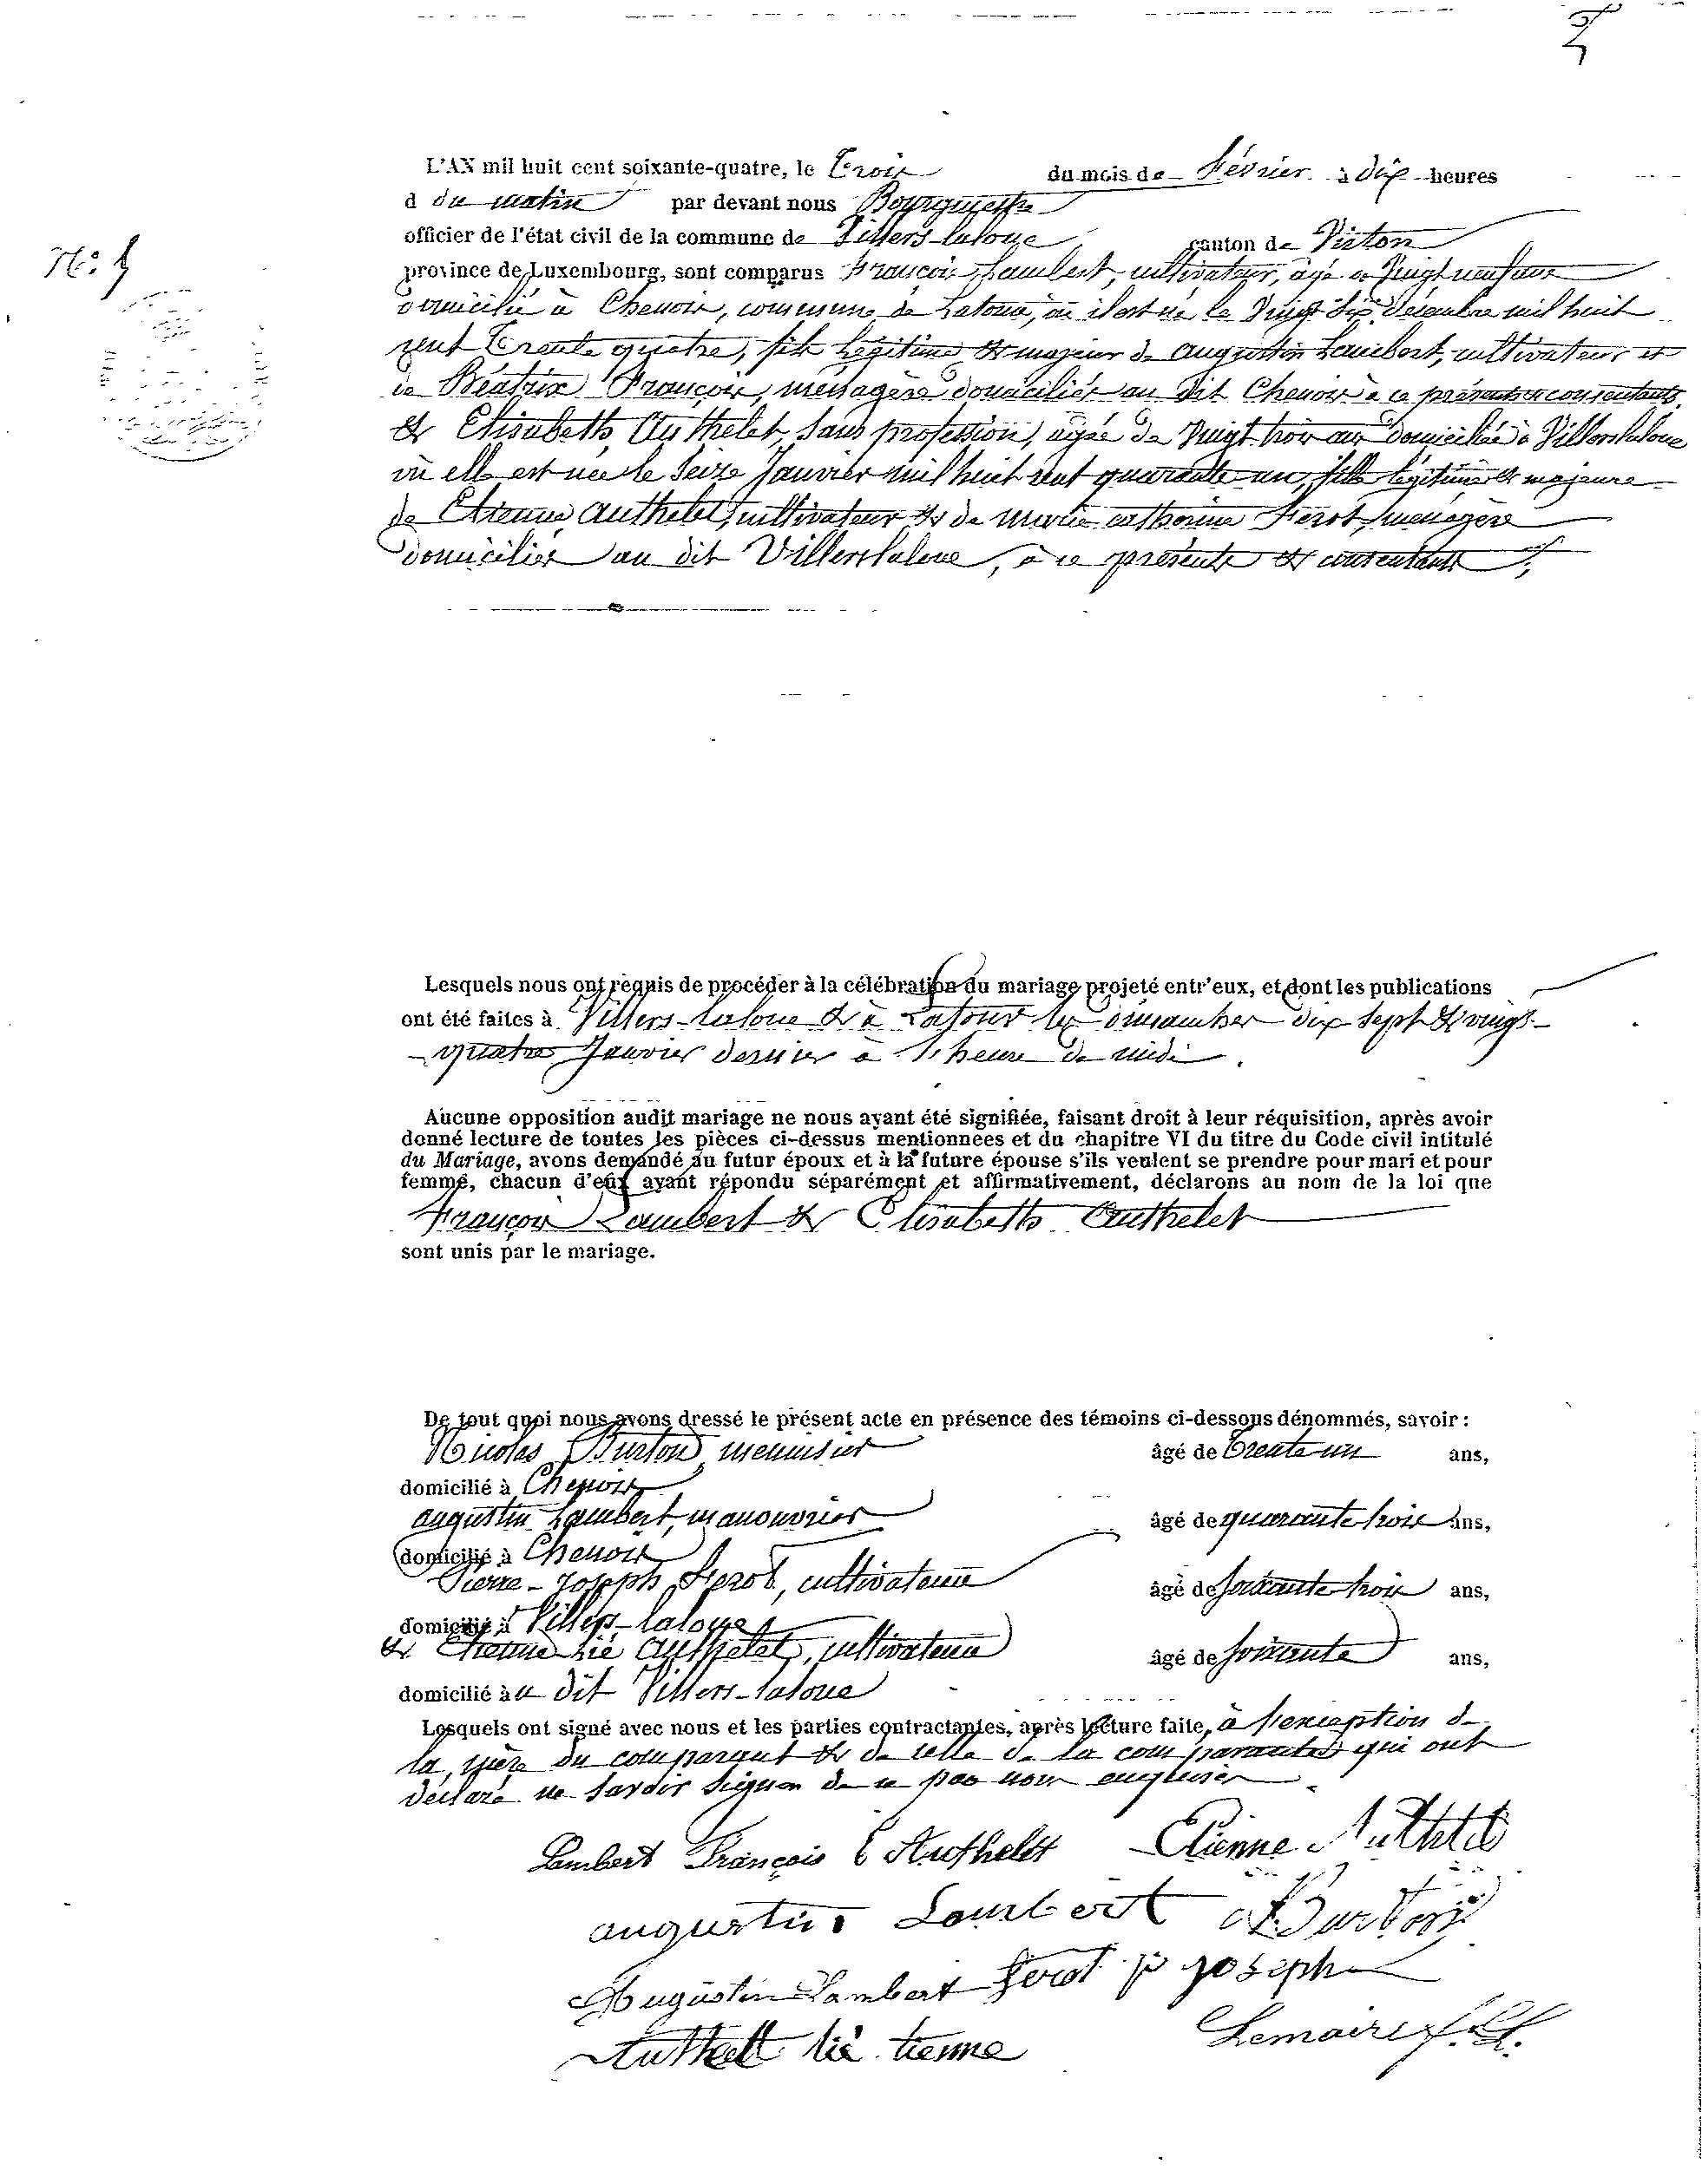 L'AN mil huit cent soixante-quatre, le Trois du mois de Février à dix heures
d du matin par devant nous Bourgmestre
officier de l'état civil de la commune de Villers-laloue canton de Virton
province de Luxembourg, sont comparus François Lambert, cultivateur, âgé de Vingt neuf ans
domicilié à Chenois, commune de Latour, où il est né le Vingt six décembre mil huit
cent Trente quatre, fils légitime & majeur de augustin Lambert, cultivateur et
de Béatrix François, ménagère domiciliés au dit Chenois à ce présents & consentants,
& Elisabeth Authelet, sans profession, agée de Vingt trois ans domiciliée à Villerslaloue
où elle est née le Seize Janvier mil huit cent quarante un, fille légitime & majeure
de Etienne Authelet, cultivateur & de Marie catherine Ferot, ménagère
domiciliés au dit Villerslaloue, à ce présents & consentants,
N°
Lesquels nous ont requis de procéder à la célébration du mariage projeté entr'eux, et dont les publications
ont été faites à Villers-laloue & à Latour les dimanches dix sept & vingt-
quatre Janvier dernier à l'heure de midi.
Aucune opposition audit mariage ne nous ayant été signifiée, faisant droit à leur réquisition, après avoir
donné lecture de toutes les pièces ci-dessus mentionnées et du chapitre VI du titre du Code civil intitulé
du Mariage, avons demandé au futur époux et à la future épouse s'ils veulent se prendre pour mari et pour
femme, chacun d'eux ayant répondu séparément et affirmativement, déclarons au nom de la loi que
François Lambert & Elisabeth Authelet
sont unis par le mariage.
De tout quoi nous avons dressé le présent acte en présence des témoins ci-dessous dénommés, savoir :
Nicolas Burton menuisier âgé de Trente un ans,
domicilié à Chenois
augustin Lambert, manouvrier âgé de quarante trois ans,
domicilié à Chenois
Pierre-Joseph Ferot, cultivateur âgé de soixante trois ans,
domicilié à Villers-laloue
& Etienne Lié Authelet, cultivateur âgé de soixante ans,
domicilié à u dit Villers-laloue
Lesquels ont signé avec nous et les parties contractantes, après lecture faite, à l'exception de
la mère du comparant & de celle de la comparante qui ont
déclaré ne savoir signer de ce pas nous enquises.
Lambert François E Authelet Etienne Authelet
augustin Lambert N Burton
Augustin Lambert Ferot p joseph
Authelet lié tienne Lemaire